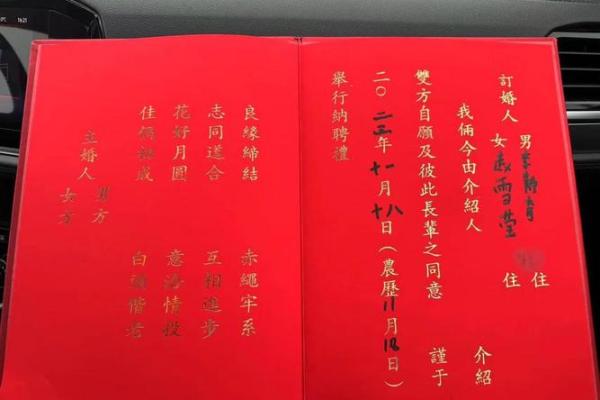 訂婚人 男 住
女 雪莹 住
我倆今由介紹人 介紹
雙方自願及彼此長輩之同意 謹于
二〇二三年十一月十八日(農歷11月18日)
舉行納聘禮
良緣締結 赤繩牢系
志同道合 互相進步
花好月圓 意洽情投
佳偶初成 白頭偕老
主婚人 男方
女方